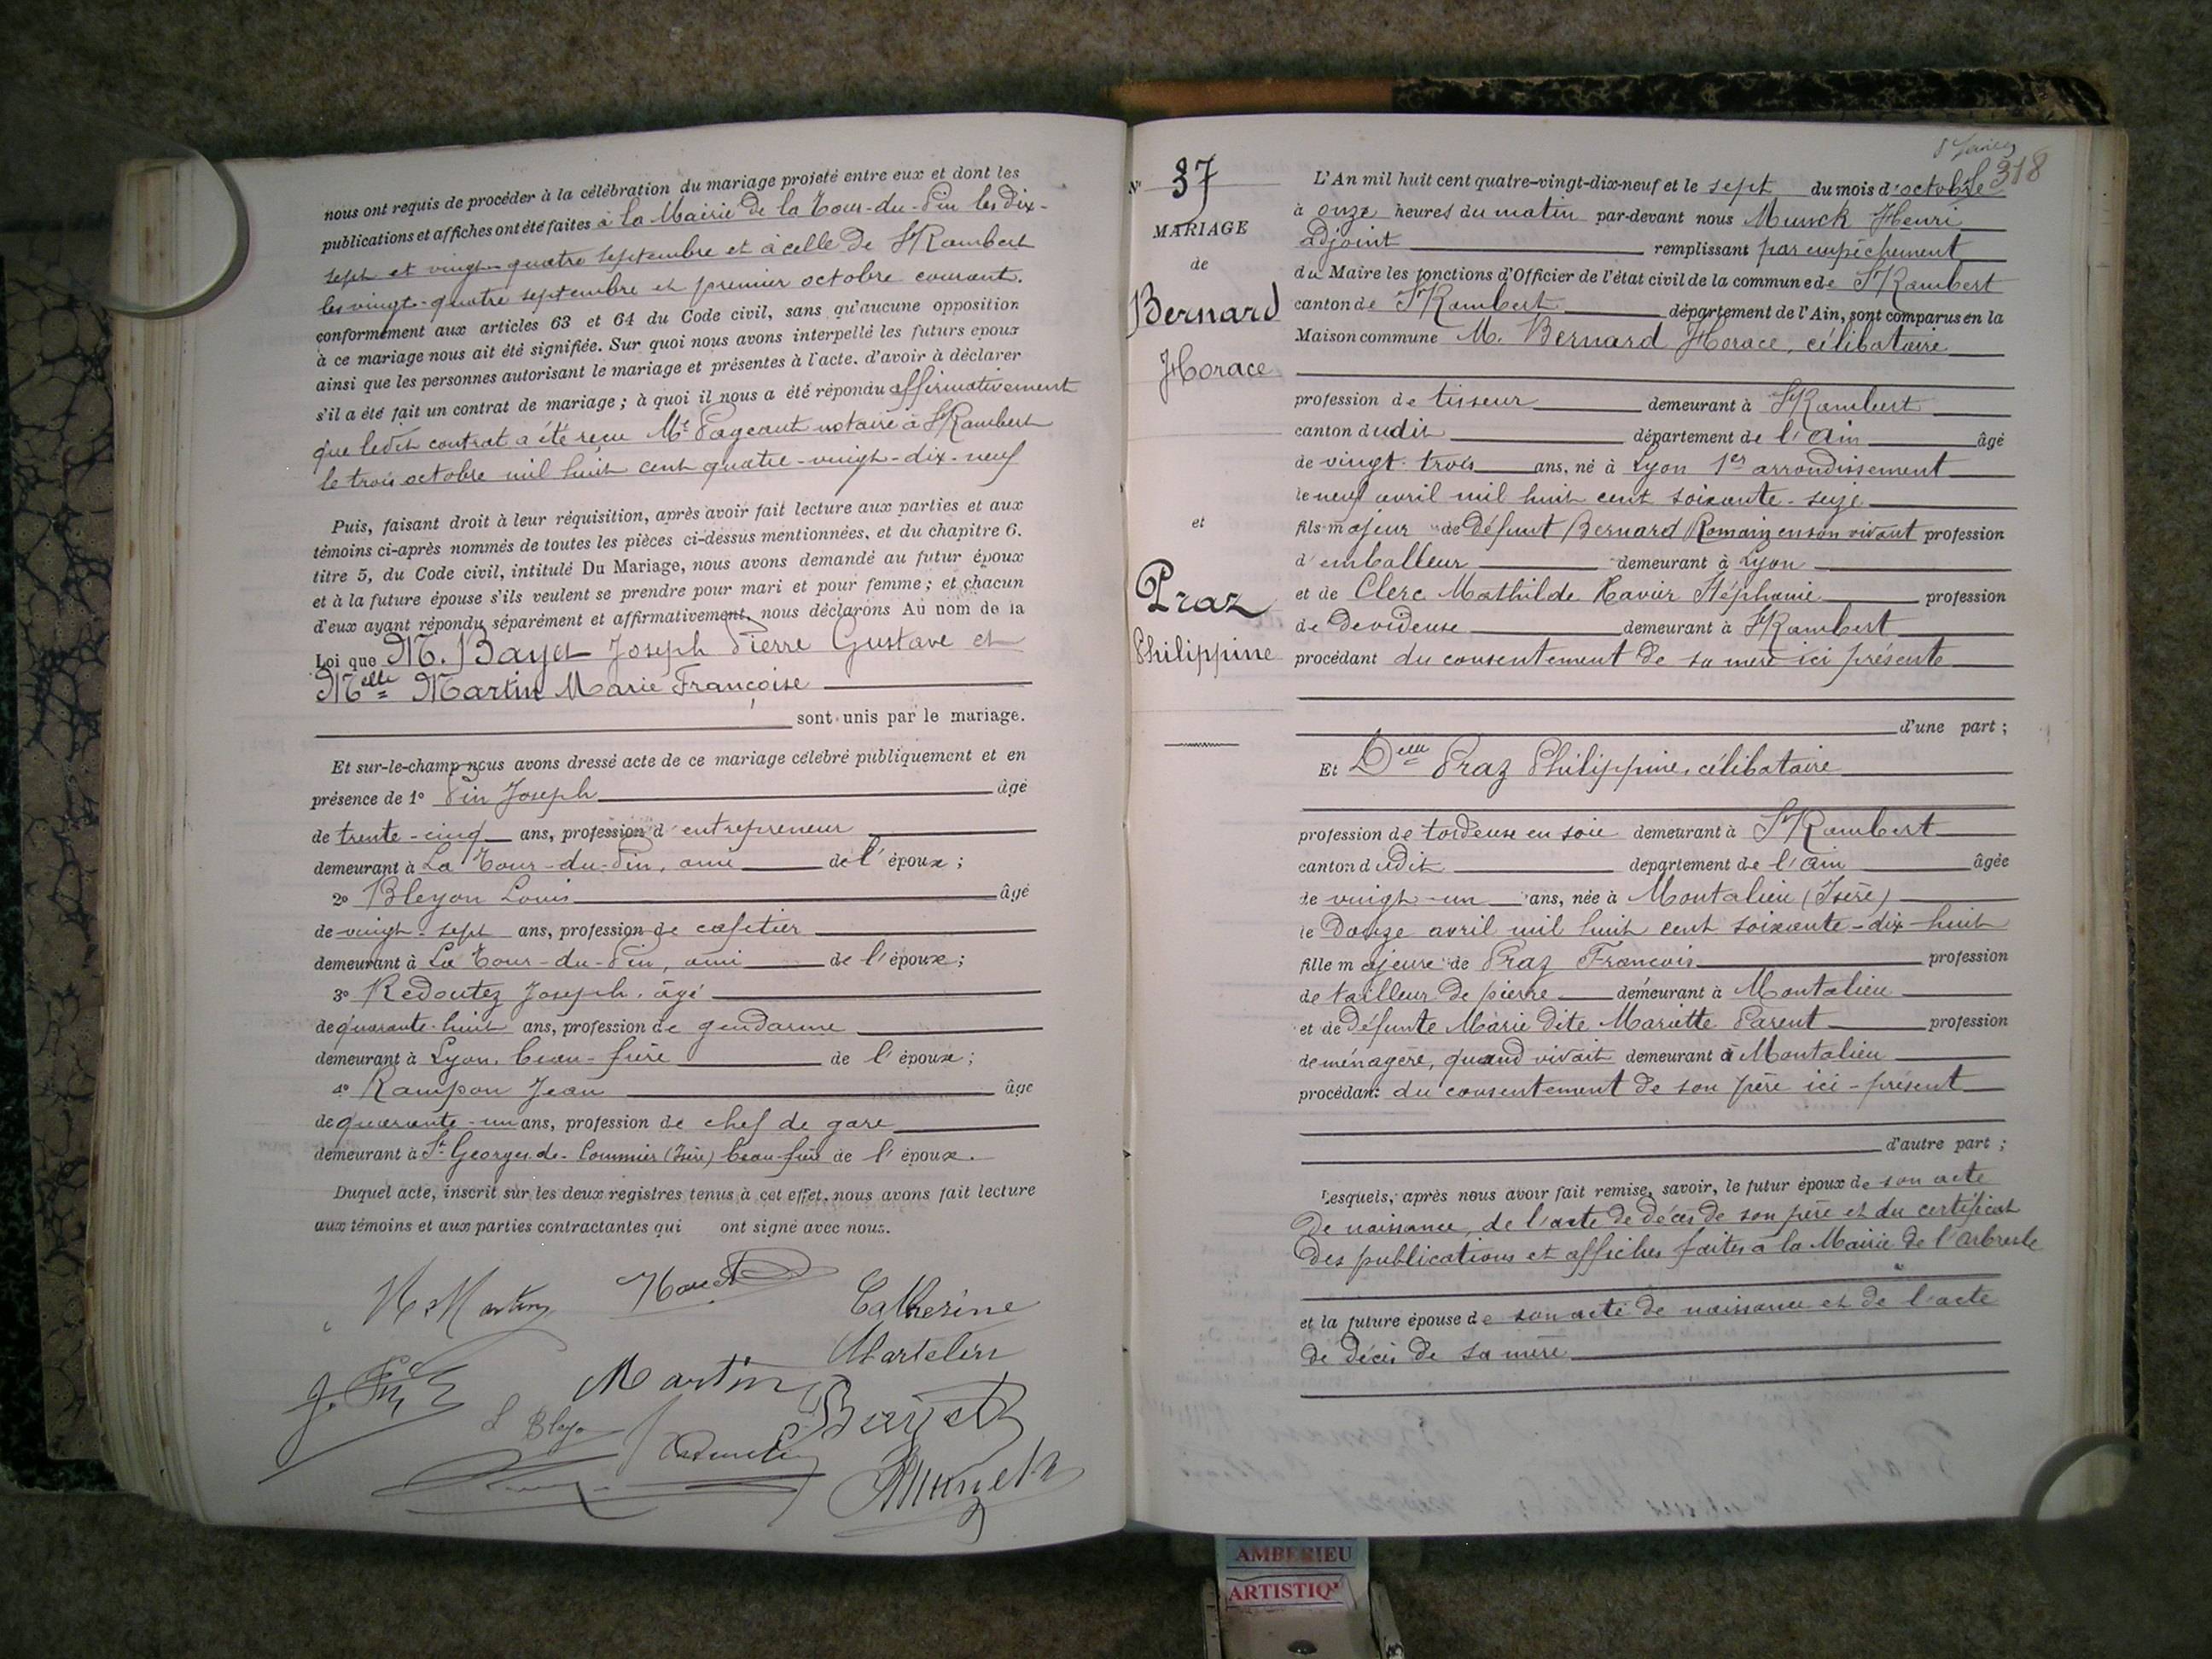 nous ont requis de procéder à la célébration du mariage projeté entre eux et dont les
publications et affiches ont été faites à la Mairie de la Tour-du-Pin les dix-
sept et vingt-quatre septembre et à celle de St Rambert
les vingt-quatre septembre et premier octobre courant.
conformément aux articles 63 et 64 du Code civil, sans qu'aucune opposition
à ce mariage nous ait été signifiée. Sur quoi nous avons interpellé les futurs époux
ainsi que les personnes autorisant le mariage et présentes à l'acte, d'avoir à déclarer
s'il a été fait un contrat de mariage ; à quoi il nous a été répondu affirmativement
que ledit contrat a été reçu Me Pageaut notaire à St Rambert
le trois octobre mil huit cent quatre-vingt-dix-neuf
Puis, faisant droit à leur réquisition, après avoir fait lecture aux parties et aux
témoins ci-après nommés de toutes les pièces ci-dessus mentionnées, et du chapitre 6.
titre 5, du Code civil, intitulé Du Mariage, nous avons demandé au futur époux
et à la future épouse s'ils veulent se prendre pour mari et pour femme ; et chacun
d'eux ayant répondu séparément et affirmativement, nous déclarons Au nom de la
Loi que M. Bayet Joseph Pierre Gustave et
Melle Martin Marie Françoise
sont unis par le mariage.
Et sur-le-champ nous avons dressé acte de ce mariage célébré publiquement et en
présence de 1° Pin Joseph âgé
de trente-cinq ans, profession d'entrepreneur
demeurant à La Tour-du-Pin, ami de l'époux ;
2° Bleyon Louis âgé
de vingt-sept ans, profession de cafetier
demeurant à La Tour-du-Pin, ami de l'époux ;
3° Redoutez Joseph, âgé
de quarante-huit ans, profession de gendarme
demeurant à Lyon, beau-frère de l'époux ;
4° Rampon Jean âgé
de quarante-un ans, profession de chef de gare
demeurant à St Georges-de-Commier (Isère) beau-frère de l'époux.
Duquel acte, inscrit sur les deux registres tenus à cet effet, nous avons fait lecture
aux témoins et aux parties contractantes qui ont signé avec nous.
Martin Catherine
Martelin
Martin
Bayet
Munck
N° 37
MARIAGE
de
Bernard
Horace
et
Praz
Philippine
318
L'An mil huit cent quatre-vingt-dix-neuf et le sept du mois d'octobre
à onze heures du matin par-devant nous Munck Henri
adjoint remplissant par empêchement
du Maire les fonctions d'Officier de l'état civil de la commune de St Rambert
canton de St Rambert département de l'Ain, sont comparus en la
Maison commune M. Bernard Horace, célibataire
profession de tisseur demeurant à St Rambert
canton dudit département de l'Ain âgé
de vingt-trois ans, né à Lyon 1er arrondissement
le neuf avril mil huit cent soixante-seize
fils majeur de défunt Bernard Romain en son vivant profession
d'emballeur demeurant à Lyon
et de Clerc Mathilde Xavier Stéphanie profession
de devideuse demeurant à St Rambert
procédant du consentement de sa mère ici présente
d'une part ;
Et Delle Praz Philippine, célibataire
profession de tordeuse en soie demeurant à St Rambert
canton dudit département de l'Ain âgée
de vingt-un ans, née à Montalieu (Isère)
le Douze avril mil huit cent soixante-dix-huit
fille majeure de Praz François profession
de tailleur de pierre demeurant à Montalieu
et de défunte Marie dite Mariette Parent profession
de ménagère, quand vivait demeurant à Montalieu
procédant du consentement de son père ici-présent
d'autre part ;
Lesquels, après nous avoir fait remise, savoir, le futur époux de son acte
de naissance, de l'acte de décès de son père et du certificat
des publications et affiches faites à la Mairie de l'Arbresle
et la future épouse de son acte de naissance et de l'acte
de décès de sa mère
AMBERIEU
ARTISTIQ